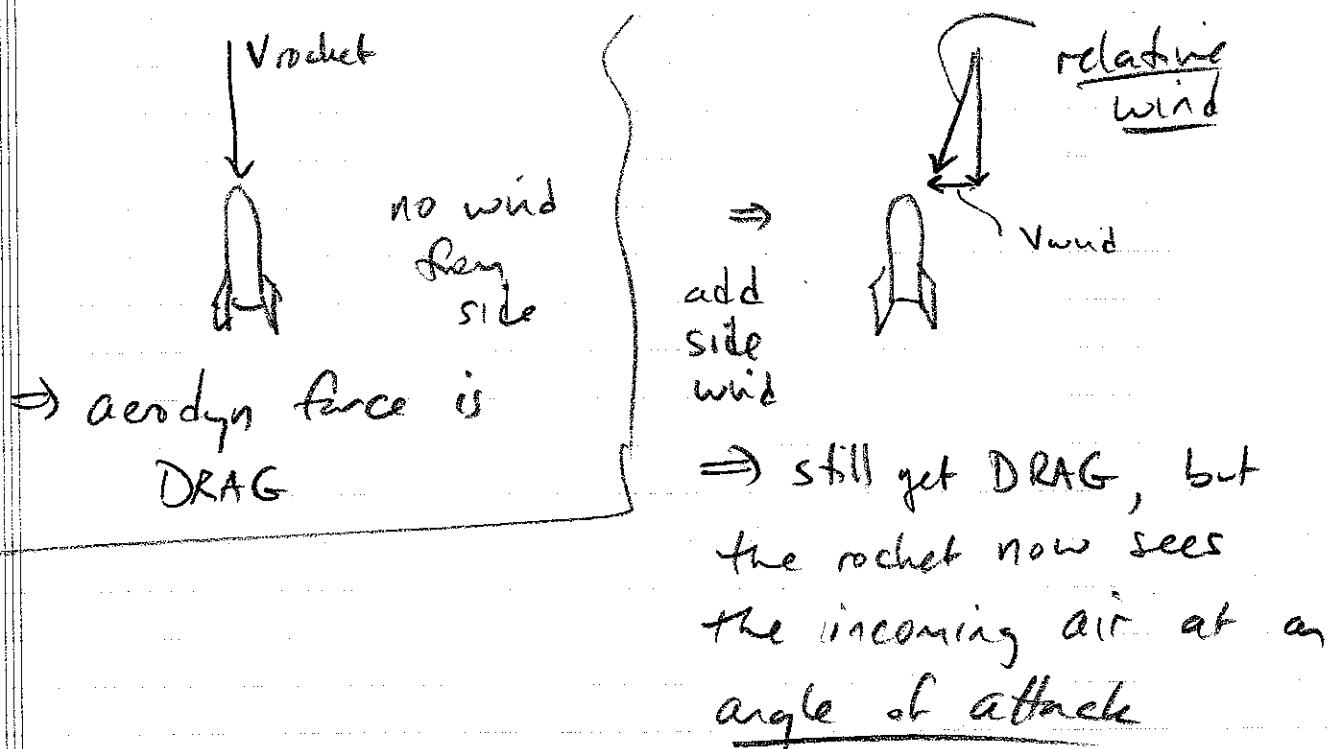 V rocket
no wind
from
side
⇒ aerodyn force is
DRAG
relative
wind
V wind
⇒
add
side
wind
⇒ still get DRAG, but
the rocket now sees
the incoming air at an
angle of attack